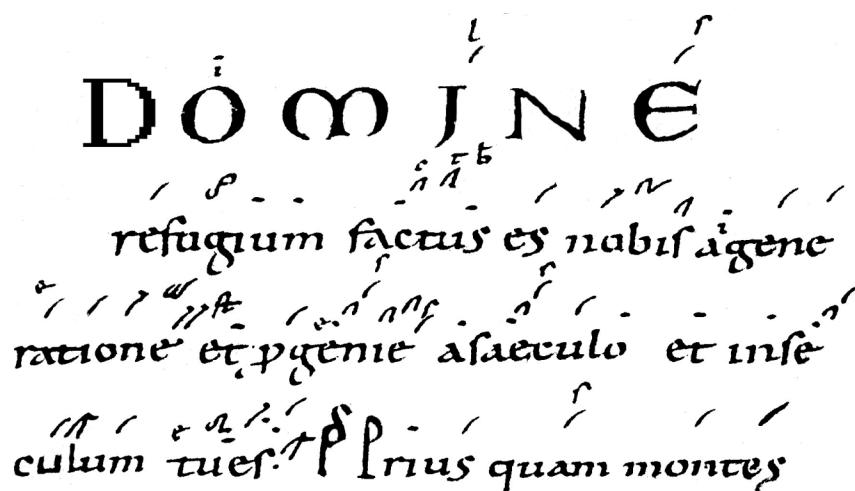 DOMINE
refugium factus es nobis agene
ratione et pgenie asaeculo et inse
culum tu es. Prius quam montes